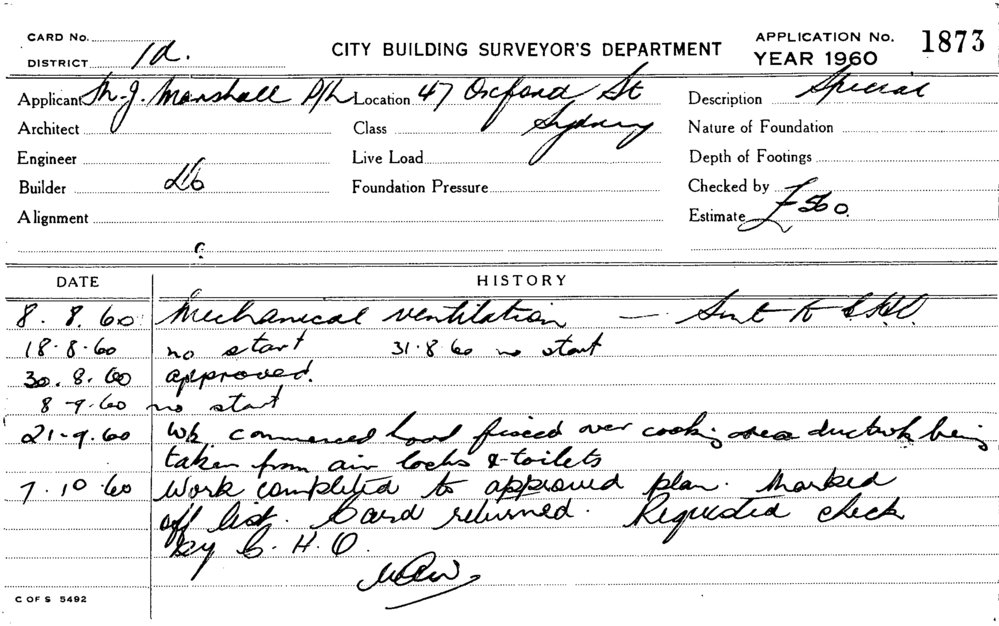 CARD No.
DISTRICT 1d.
CITY BUILDING SURVEYOR'S DEPARTMENT
APPLICATION No. 1873
YEAR 1960
Applicant M.J. Marshall P/L
Location 47 Oxford St
Sydney
Description Special
Architect
Class
Nature of Foundation
Engineer
Live Load
Depth of Footings
Builder do
Foundation Pressure
Checked by
Alignment
Estimate £560.
DATE HISTORY
8.8.60 Mechanical ventilation — Sent to
18.8.60 no start 31.8.60 no start
30.8.60 approved.
8-9.60 no start
21-9.60 Wk. commenced hood fixed over cooking area ductwk being
taken from air locks & toilets
7.10.60 Work completed to approved plan. Marked
off list. Card returned. Requested check
by C.H.O.
C OF S 5492